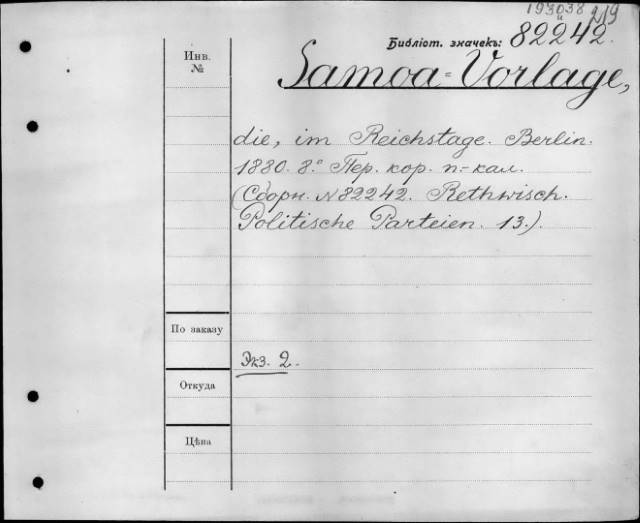 193038
и 219
Библіот. значекъ: 82242.
Инв.
№
Samoa-Vorlage,
die, im Reichstage. Berlin.
1880. 8.° Пер. кор. п-кал.
(Сборн. №82242. Rethwisch.
Politische Parteien. 13.).
По заказу
Экз. 2.
Откуда
Цѣна